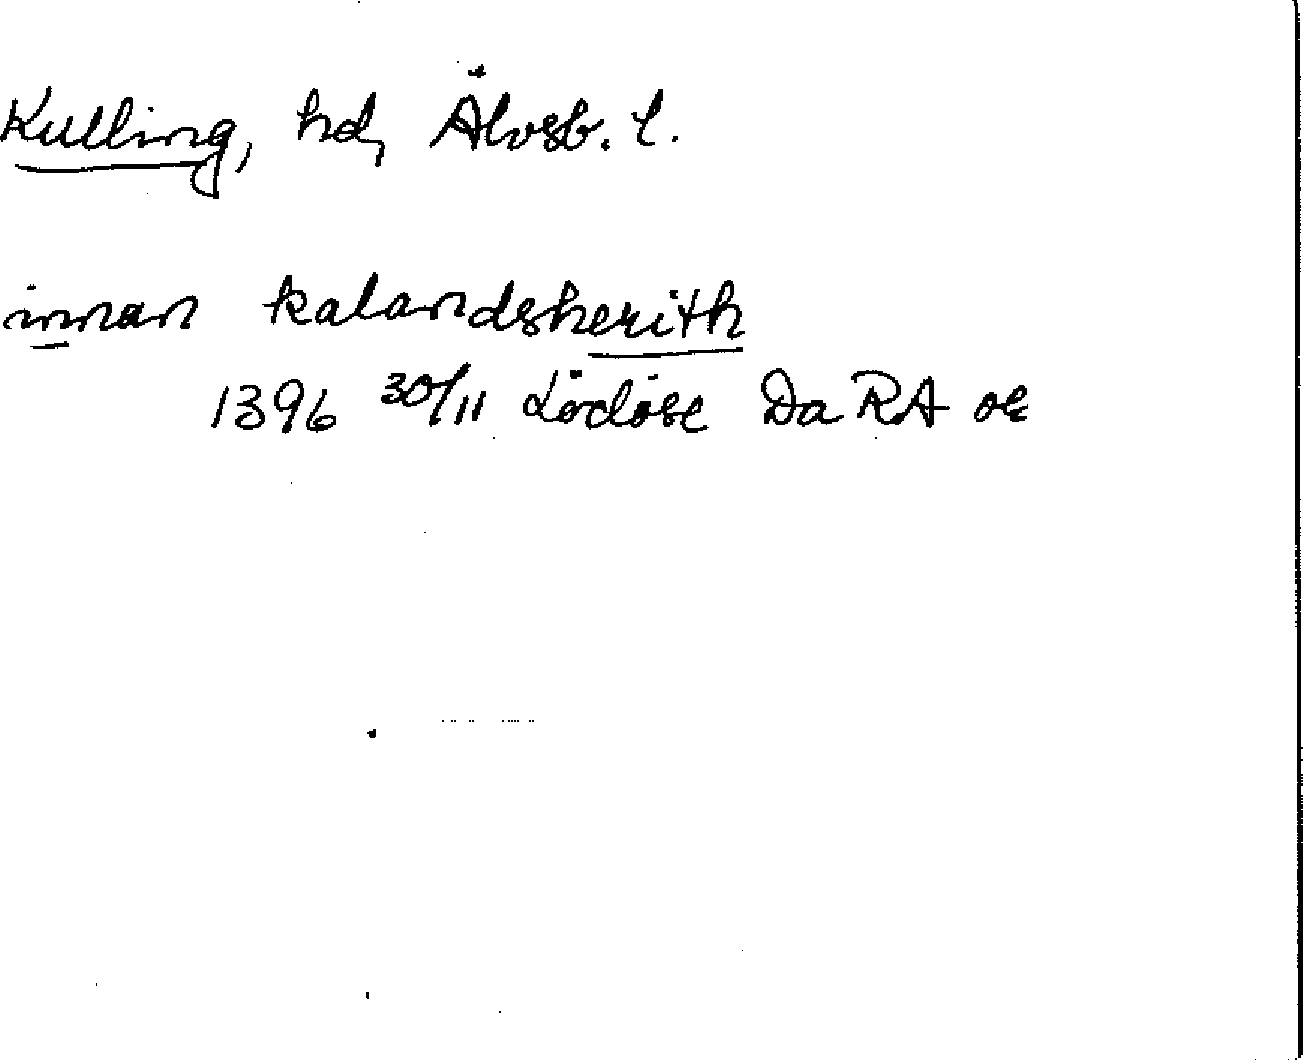 Kulling, hd, Älvsb. l.
innan kalandsherith
1396 30/11 Lödöse Da RA or